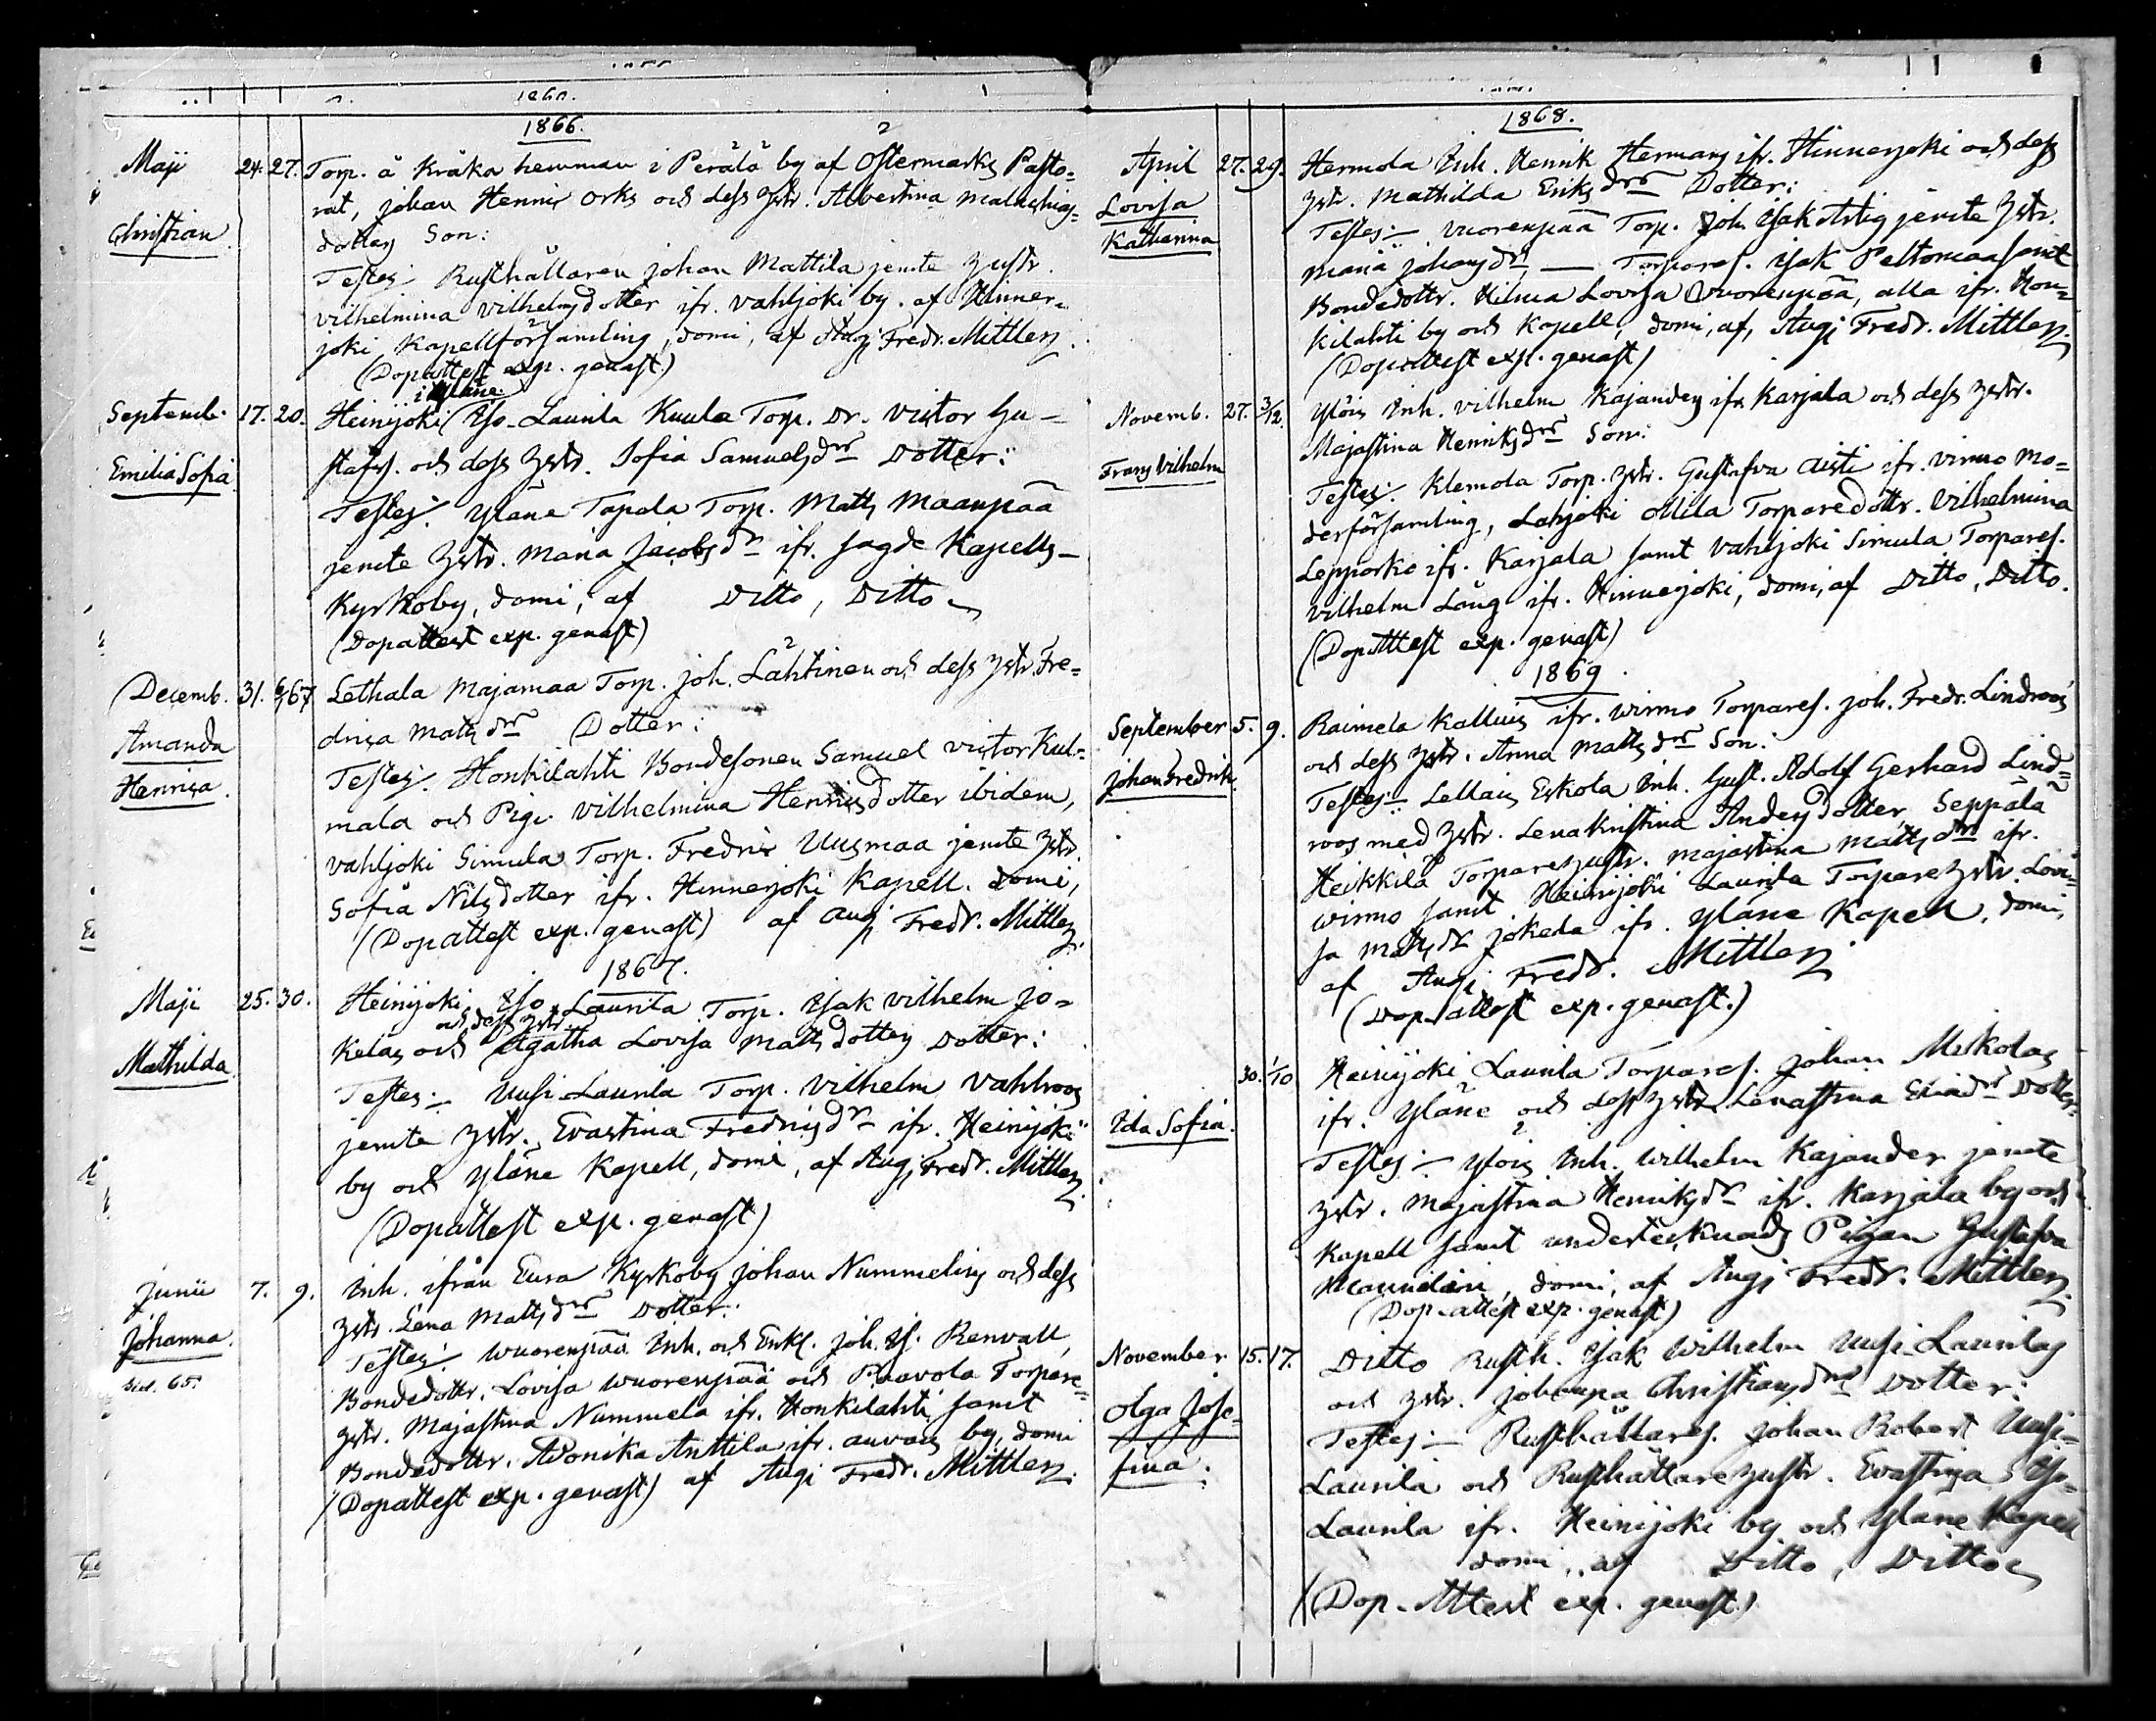 1866.
Maji 24. 27. Torp. å Kråka hemman i Peràlà by af Ostermarks Pasto=
Christian rat, johan Henric Orks och dess hstr. Albertina Mathias
dotters Son:
Testes: Rusthållaren johan Mattila jemte hustr.
vilhelmina vilhelmsdotter ifr. vahljoki by. af Hinner=
joki Kapellförsamling, domi, af Aug: Fredr. Mittler.
(Dopattest exp. genast.)
i Yläne
Septemb. 17. 20. Heinijoki Yso-Launila Kuula Torp. Dr. victor Gu-
Emilia Sofia. stafss. och dess hstr. Sofia Samuelsdrs Dotter:
Testes: Yläne Tapala Torp. Matts Maanpää
jemte hstr. Maria Jacobsdr ifr. sagde Kapells-
Kyrkoby, domi, af Ditto, Ditto
(Dopattest exp. genast)
Decemb. 31. 6/1 67 Lethala Majamaa Torp. joh. Lahtinen och dess hstr. Fre=
Amanda drica Mattsdrs Dotter:
Henrica. Testes: Honkilahti Bondesonen Samuel victor Kul=
mala och Pig. vilhelmina Henricsdotter ibidem,
vahljoki Simula Torp. Fredric Uusmaa jemte hstr.
Sofia Nilsdotter ifr. Hinnerjoki Kapell. domi,
(Dopattest exp. genast) af Aug: Fredr. Mittler.
1867.
Maji 25. 30. Heinijoki Yso Launila Torp. Isak vilhelm Jo=
och dess hstr.
Mathilda kelas och Agatha Lovisa Matts dotters Dotter:
Testes:- Uusi-Launila Torp. vilhelm vahlroos
jemte hstr. Evastina Fredricsdr ifr. Heinijoki
by och Yläne Kapell, domi, af Aug: Fredr. Mittler.
(Dopattest exp. genast)
Junii 7. 9. Inh. ifrån Eura Kyrkoby johan Nummelins och dess
Johanna. hstr. Lena Mattsdrs Dotter:
Sid. 65. Testes: Wuorenpää Inh. och Enkl. joh. Is. Renvall,
Bondedottr. Lovisa Wuorenpää och Paavola Torpare=
hstr. Majastina Nummela ifr. Honkilahti samt
Bondedottr. Adonika Anttila ifr. auvais by, domi
(Dopattest exp. genast) af Aug: Fredr. Mittler.
1868.
April 27. 29. Hermola Inh. Henrik Hermans ifr. Hinnerjoki och dess
Lovisa hstr. Mathilda Eriksdrs Dotter:
Katharina Testes:- vuorenpää Torp. Joh. Isak Artig jemte hstr.
Maria johansdr, — Torpares. Isak Peltomaa samt
Bondedottr. Hilma Lovisa Vuorenpää, alla ifr. Hon=
kilahti by och Kapell, domi, af, Aug: Fredr. Mittler.
(Dopattest exp. genast)
Novemb. 27. 3/12. Ylöis Inh. vilhelm Kajanders ifr. Karjala och dess hstr.
Majastina Henriksdrs Son:
Frans Vilhelm Testes: Klemola Torp. hstr. Gustafva Aisti ifr. virmo Mo=
derförsamling, Lahjoki Ollila Torparedottr. Vilhelmina
Lepporko ifr. Karjala samt vahljoki Simula Torpares.
vilhelm Lång ifr. Hinnerjoki, domi, af Ditto, Ditto.
(DopAttest exp. genast)
1869.
September 5. 9. Raimela Kalluis ifr. wirmo Torpares. joh. Fredr. Lindroos
Johan Fredrik. och dess hstr. Anna Mattsdrs Son:
Testes:- Lellais Eskola Inh. Gust. Adolf Gerhard Lind=
roos med hstr. Lena Kristina Andersdotter, Seppälä
Heikkilä Torparehustr. Majastina Mattsdr ifr.
wirmo samt Heinijoki Launila Torparehstr. Lovi=
sa Mattsdr Jokela ifr. Yläne Kapell, domi,
af Aug: Fredr. Mittler
(Dop-attest exp. genast.)
30. 1/10 Heinijoki Launila Torpares. Johan Mikolas
Ida Sofia. ifr. Yläne och dess hstr. Lenastina Ericsdrs Dotter:
Testes:- Ylöis Inh. Wilhelm Kajander jemte
hstr. Majastina Henriksdr ifr. Karjala by och
Kapell samt undertecknads Pigan Gustafva
domi, af Aug: Fredr. Mittler.
(Dop-attest exp. genast)
November 15. 17. Ditto Rusth. Isak Wilhelm Uusi-Launilas
Olga Jose= och hstr. Johanna Christiansdrs Dotter:
fina. Testes:- Rusthållares. Johan Robert Uusi-
Launila och Rusthållarehustr. Evastina Yso-
Launila ifr. Heinijoki by och Yläne Kapell
domi, af Ditto, Ditto
(Dop-Attest exp. genast.)